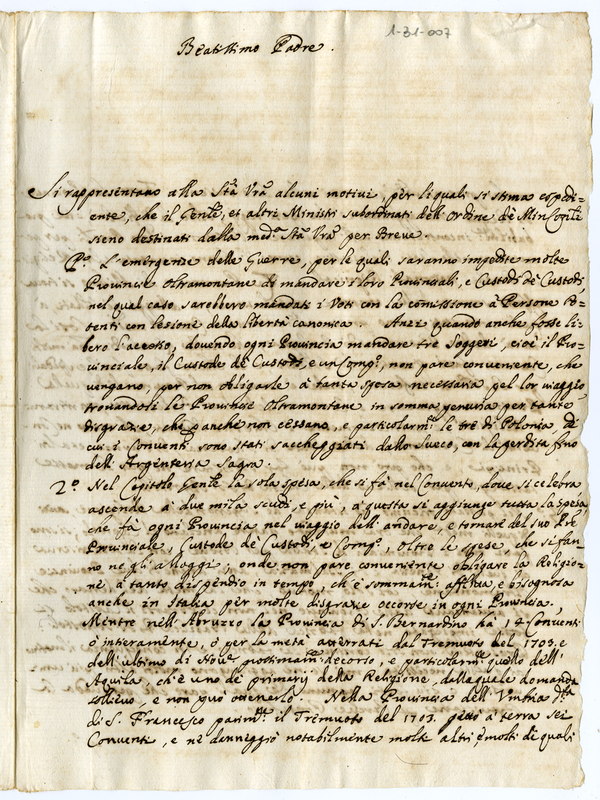 1-31-007
Beatissimo Padre.
Si rappresentano alla Stà Vrà alcuni motivi, per li quali si stima espedi=
ente, che il Genle, et altri Ministri subordinati dell'Ordine de Min Conli
sieno destinati dalla medà Stà Vrà per Breve.
Pº. L'emergenze delle Guerre, per le quali saranno impedite molte
Provincie Oltramontane di mandare i loro Provinciali, e Custodi de Custodi,
nel qual caso sarebbero mandati i Voti con la comissione à Persone Po=
tenti con lesione della libertà canonica. Anzi quando anche fosse li=
bero l'accesso, dovendo ogni Provincia mandare trè Soggetti, cioè il Pro=
vinciale, il Custode de Custodi, e un Compº, non pare conveniente, che
vengano, per non obligarle à tanta spesa necessaria pel lor viaggio,
trovandosi le Provincie Oltramontane in somma penuria per tante
disgrazie, che anche non cessano, e particolarmte le trè di Polonia, di
cui i Conventi sono stati saccheggiati dallo Sueco, con la perdita fino
dell'Argenteria Sagra.
2º. Nel Capitolo Genle la sola spesa, che si fà nel Convento, dove si celebra
ascende à due mila scudi, e più, à questa si aggiunge tutta la spesa
che fà ogni Provincia nel viaggio dell'andare, e tornare del suo Pre
Provinciale, Custode de Custodi, e Compº, oltre le spese, che si fan=
no ne gli alloggi; onde non pare conveniente obligare la Religio=
ne à tanto dispendio in tempo, ch'è sommamte afflitta, e bisognosa
anche in Italia per molte disgrazie occorse in ogni Provincia.
Mentre nell'Abruzzo la Provincia di S. Bernardino hà 14 Conventi
ò interamente, ò per la metà atterrati dal Tremuoto del 1703. e
dell'ultimo di Nove prossimamte decorso, e particolarmte quello dell'
Aquila, ch'è uno de primarij della Religione, dalla quale domanda
sollievo, e non può ottenerlo. Nella Provincia dell'Umbria dta
di S. Francesco parimte il Tremuoto del 1703. gettò à terra sei
Conventi, e nè danneggiò notabilmente molti altri, è molti de quali